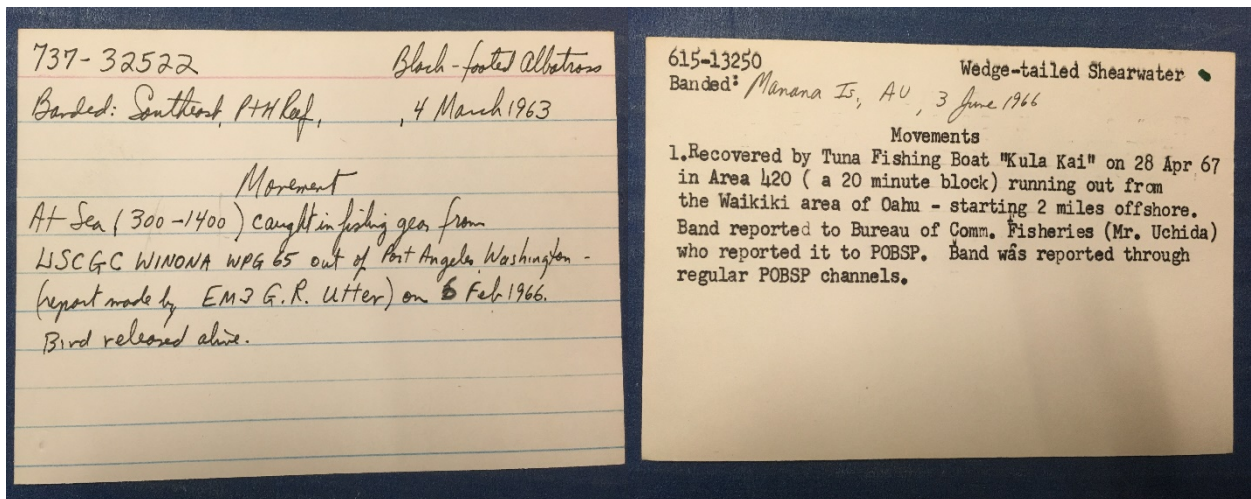 737-32522 Black-footed Albatross
Banded: Southeast, P+H Reef, , 4 March 1963
Movement
At Sea (300-1400) caught in fishing gear from
USCGC WINONA WPG 65 out of Port Angeles, Washington -
(report made by EM3 G.R. Utter) on 6 Feb 1966.
Bird released alive.
615-13250 Wedge-tailed Shearwater
Banded: Manana Is, AU, 3 June 1966
Movements
1.Recovered by Tuna Fishing Boat "Kula Kai" on 28 Apr 67
in Area 420 ( a 20 minute block) running out from
the Waikiki area of Oahu - starting 2 miles offshore.
Band reported to Bureau of Comm. Fisheries (Mr. Uchida)
who reported it to POBSP. Band was reported through
regular POBSP channels.